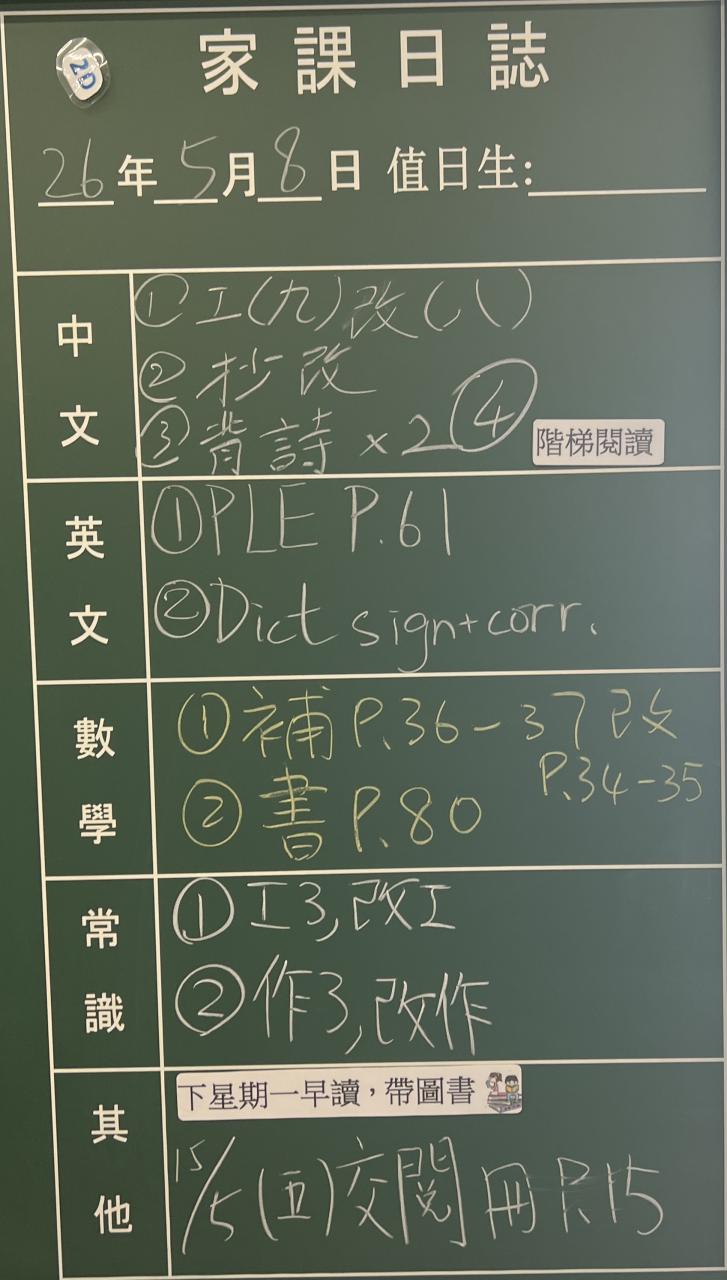 2D
家課日誌
26年5月8日 值日生:
中文
①工(九)改(八)
②抄改
③背詩×2 ④
階梯閱讀
英文
①PLE P.61
②Dict sign+corr.
數學
①補P.36-37改
P.34-35
②書P.80
常識
①工3,改工
②作3,改作
其他
下星期一早讀,帶圖書
15/5(五)交閱冊